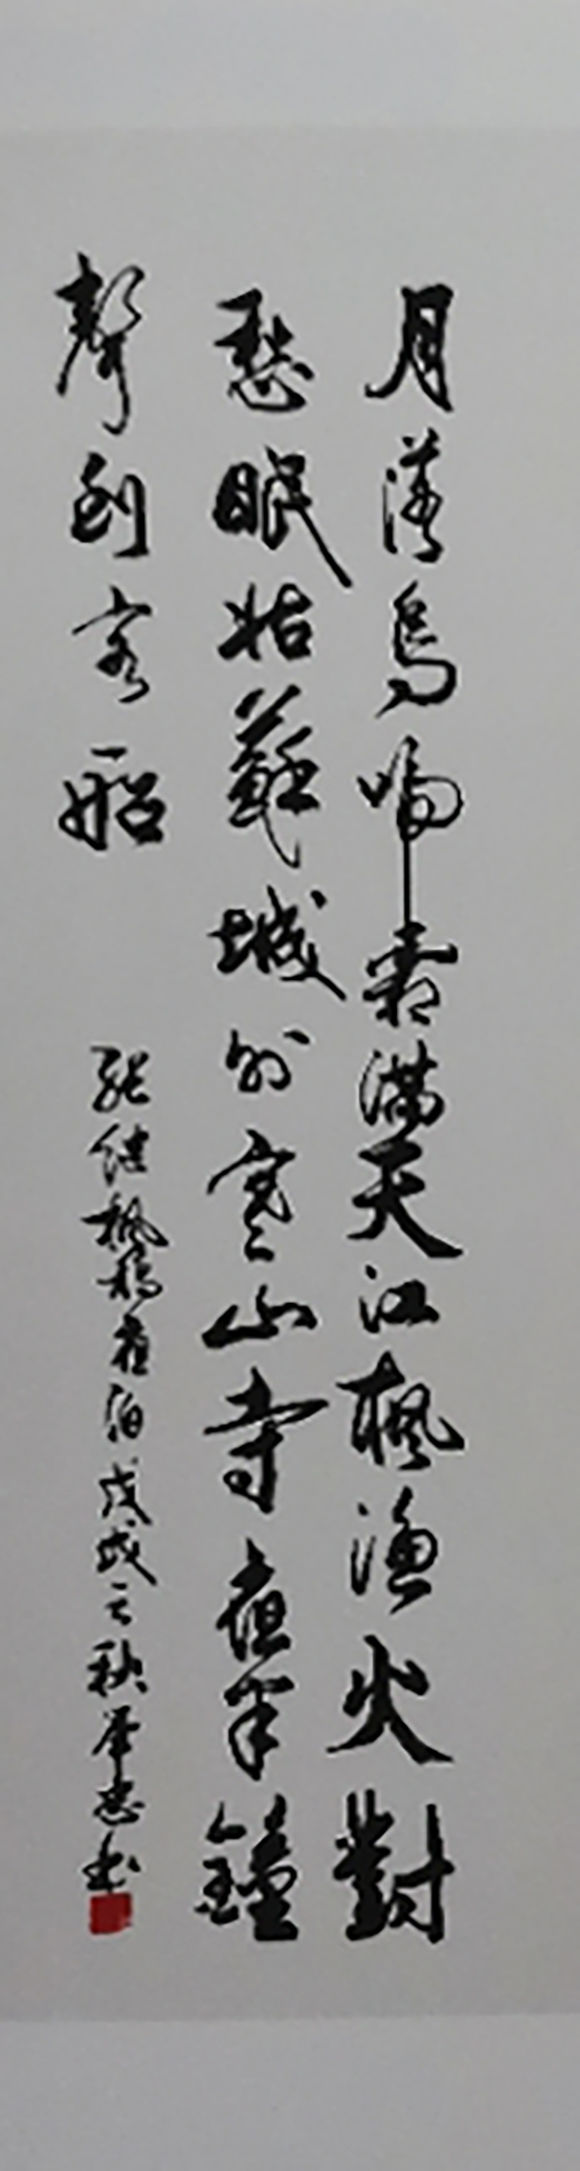 月落烏啼霜滿天江楓漁火對
愁眠姑蘇城外寒山寺夜半鐘
聲到客船
張继楓橋夜泊戊戌之秋華忠书